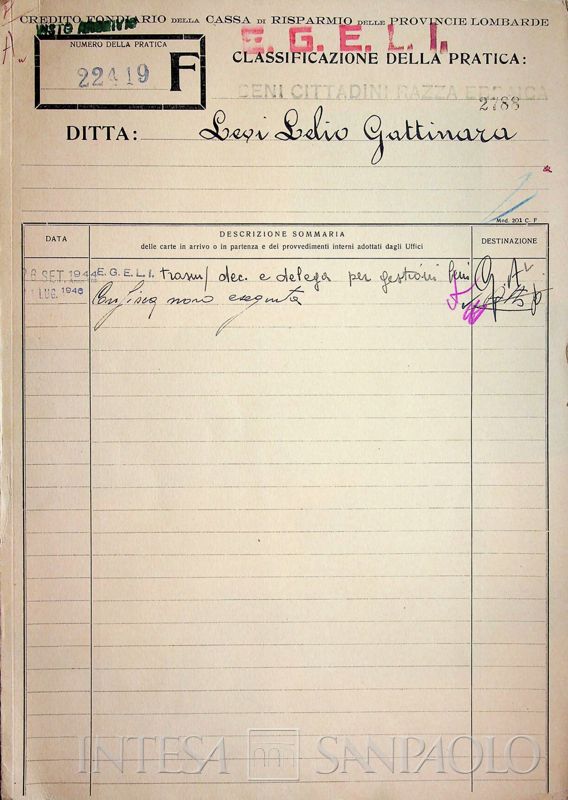 CREDITO FONDIARIO DELLA CASSA DI RISPARMIO DELLE PROVINCIE LOMBARDE
VISTO ARCHIVIO
E. G. E. L. I.
NUMERO DELLA PRATICA
22419
F
CLASSIFICAZIONE DELLA PRATICA:
BENI CITTADINI RAZZA EBRAICA
2788
DITTA: Levi Lelio Gattinara
Mod. 201 C. F
DATA
DESCRIZIONE SOMMARIA
delle carte in arrivo o in partenza e dei provvedimenti interni adottati dagli Uffici
DESTINAZIONE
26 SET. 1944 E.G.E.L.I. trasm/ dec. e delega per gestioni beni
LUG. 1946 Confisca non eseguita
INTESA SANPAOLO